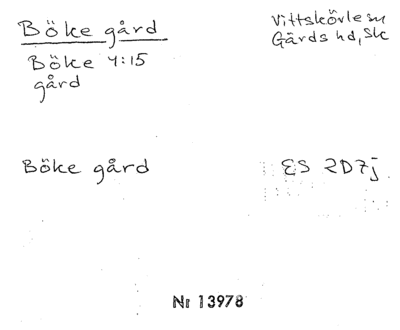 Böke gård
Vittskövle sn
Gärds hd, Sk
Böke 4:15
gård
Böke gård
ES 2D7j
Nr 13978